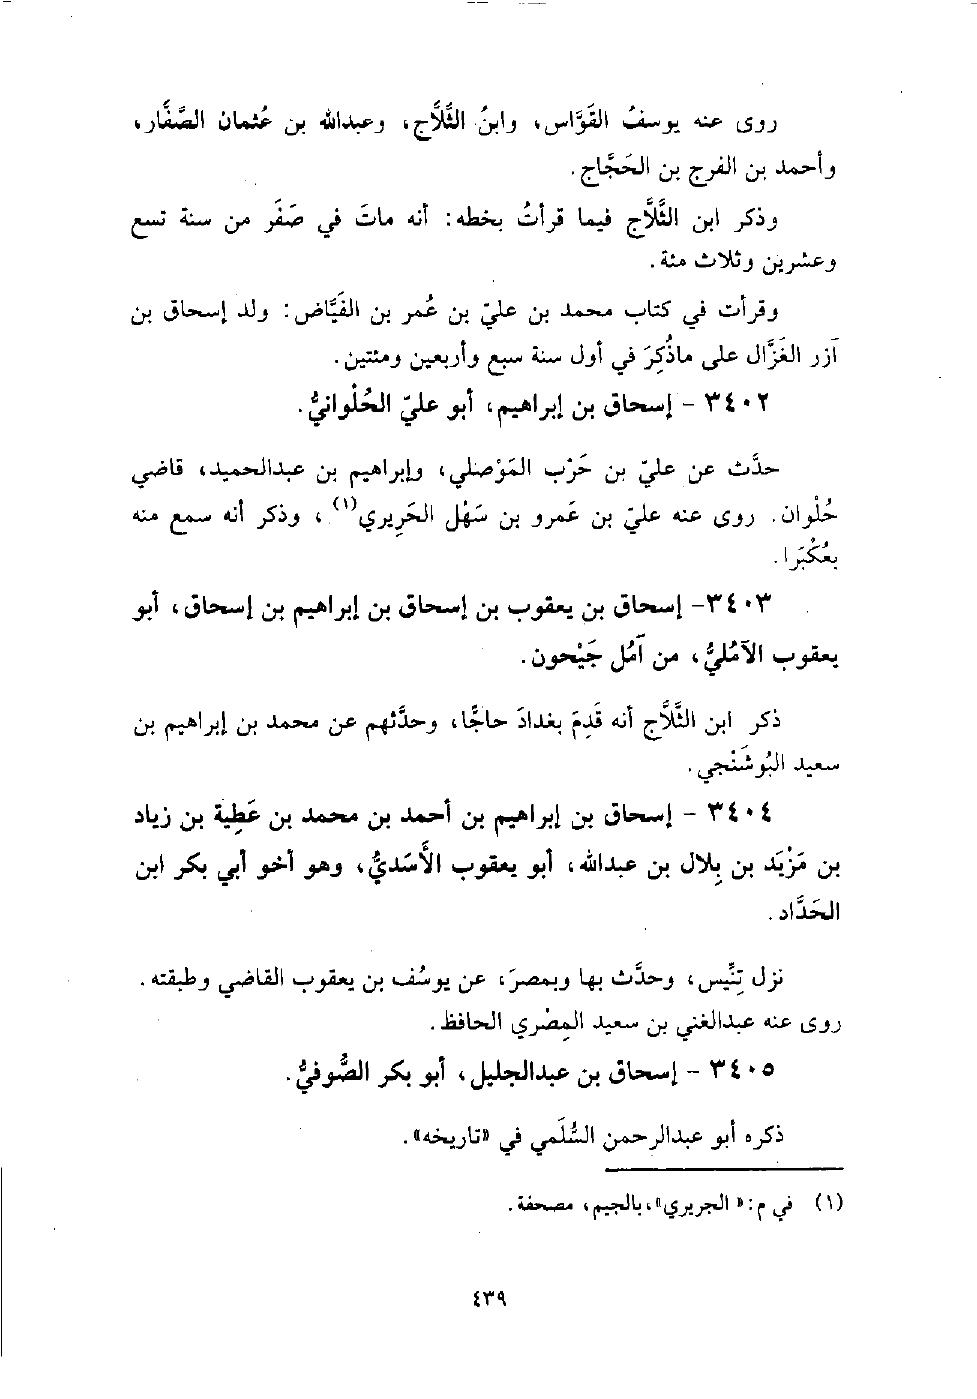 روى عنه يوسفُ القَوَّاس، وابنُ الثَّلَّاج، وعبدالله بن عُثمان الصَّفَّار،
وأحمد بن الفرج بن الحَجَّاج.
وذكر ابن الثَّلَّاج فيما قرأتُ بخطه: أنه ماتَ في صَفَر من سنة تسع
وعشرين وثلاث مئة.
وقرأت في كتاب محمد بن عليّ بن عُمر بن الفَيَّاض: ولد إسحاق بن
آزر الغَزَّال على ماذُكِرَ في أول سنة سبع وأربعين ومئتين.
٣٤٠٢ - إسحاق بن إبراهيم، أبو عليّ الحُلْوانيُّ.
حدَّث عن عليّ بن حَرْب المَوْصلي، وإبراهيم بن عبدالحميد، قاضي
حُلْوان. روى عنه عليّ بن عَمرو بن سَهْل الحَرِيري(١)، وذكر أنه سمع منه
بعُكْبَرا.
٣٤٠٣- إسحاق بن يعقوب بن إسحاق بن إبراهيم بن إسحاق، أبو
يعقوب الآمُليُّ، من آمُل جَيْحون.
ذكر ابن الثَّلَّاج أنه قَدِمَ بغدادَ حاجًّا، وحدَّثهم عن محمد بن إبراهيم بن
سعيد البُوشَنْجي.
٣٤٠٤ - إسحاق بن إبراهيم بن أحمد بن محمد بن عَطِية بن زياد
بن مَزْيَد بن بِلال بن عبدالله، أبو يعقوب الأَسَديُّ، وهو أخو أبي بكر ابن
الحَدَّاد.
نزل تِنِّيس، وحدَّث بها وبمصرَ، عن يوسُف بن يعقوب القاضي وطبقته.
روى عنه عبدالغني بن سعيد المِصْري الحافظ.
٣٤٠٥ - إسحاق بن عبدالجليل، أبو بكر الصُّوفيُّ.
ذكره أبو عبدالرحمن السُّلَمي في «تاريخه».
(١) في م: «الجريري»، بالجيم، مصحفة.
٤٣٩